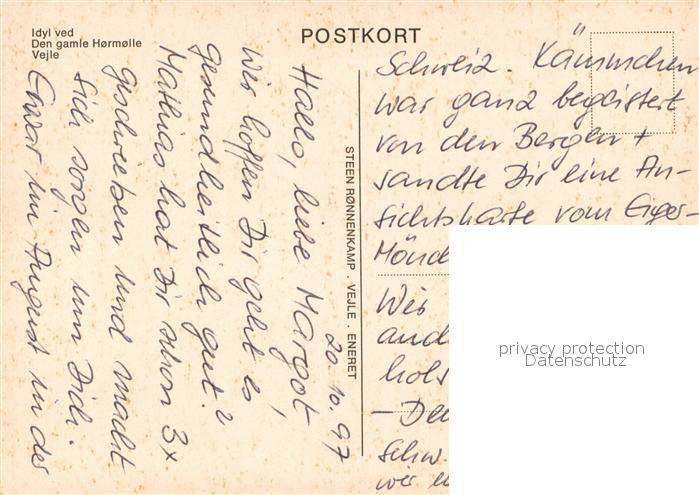 Idyl ved
Den gamle Hørmølle
Vejle
POSTKORT
STEEN RØNNENKAMP . VEJLE . ENERET
20.10.97
Hallo, liebe Margot,
wir hoffen Dir geht es
gesundheitlich gut?
Mathias hat Dir schon 3x
geschrieben und macht
sich sorgen um Dich.
Er war im August in der
Schweiz.
war ganz begeistert
von den Bergen +
sandte Dir eine An-
sichtskarte vom Eiger-
Mönch
Wir
and
hols
schw
wir
privacy protection
Datenschutz